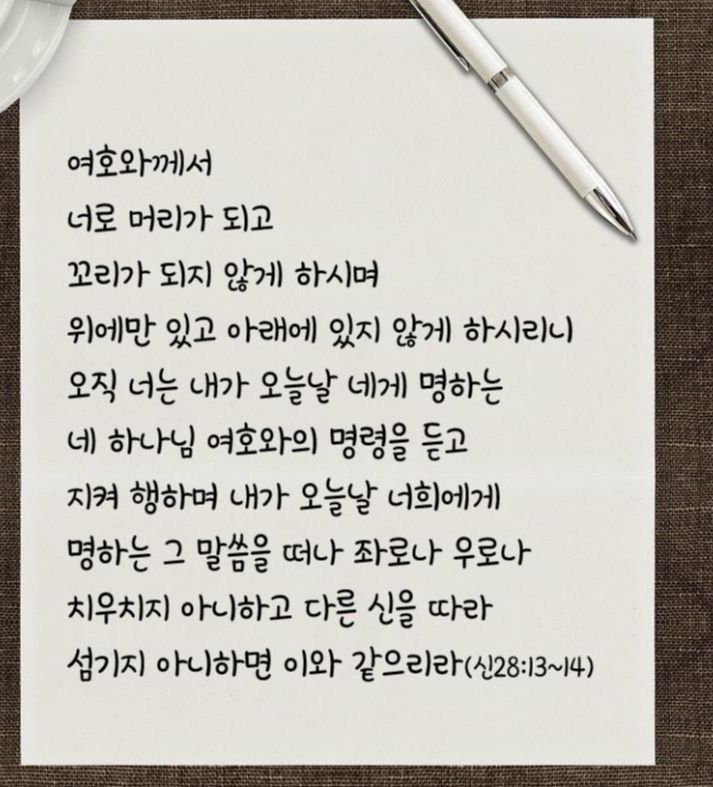 여호와께서
너로 머리가 되고
꼬리가 되지 않게 하시며
위에만 있고 아래에 있지 않게 하시리니
오직 너는 내가 오늘날 네게 명하는
네 하나님 여호와의 명령을 듣고
지켜 행하며 내가 오늘날 너희에게
명하는 그 말씀을 떠나 좌로나 우로나
치우치지 아니하고 다른 신을 따라
섬기지 아니하면 이와 같으리라(신28:13~14)